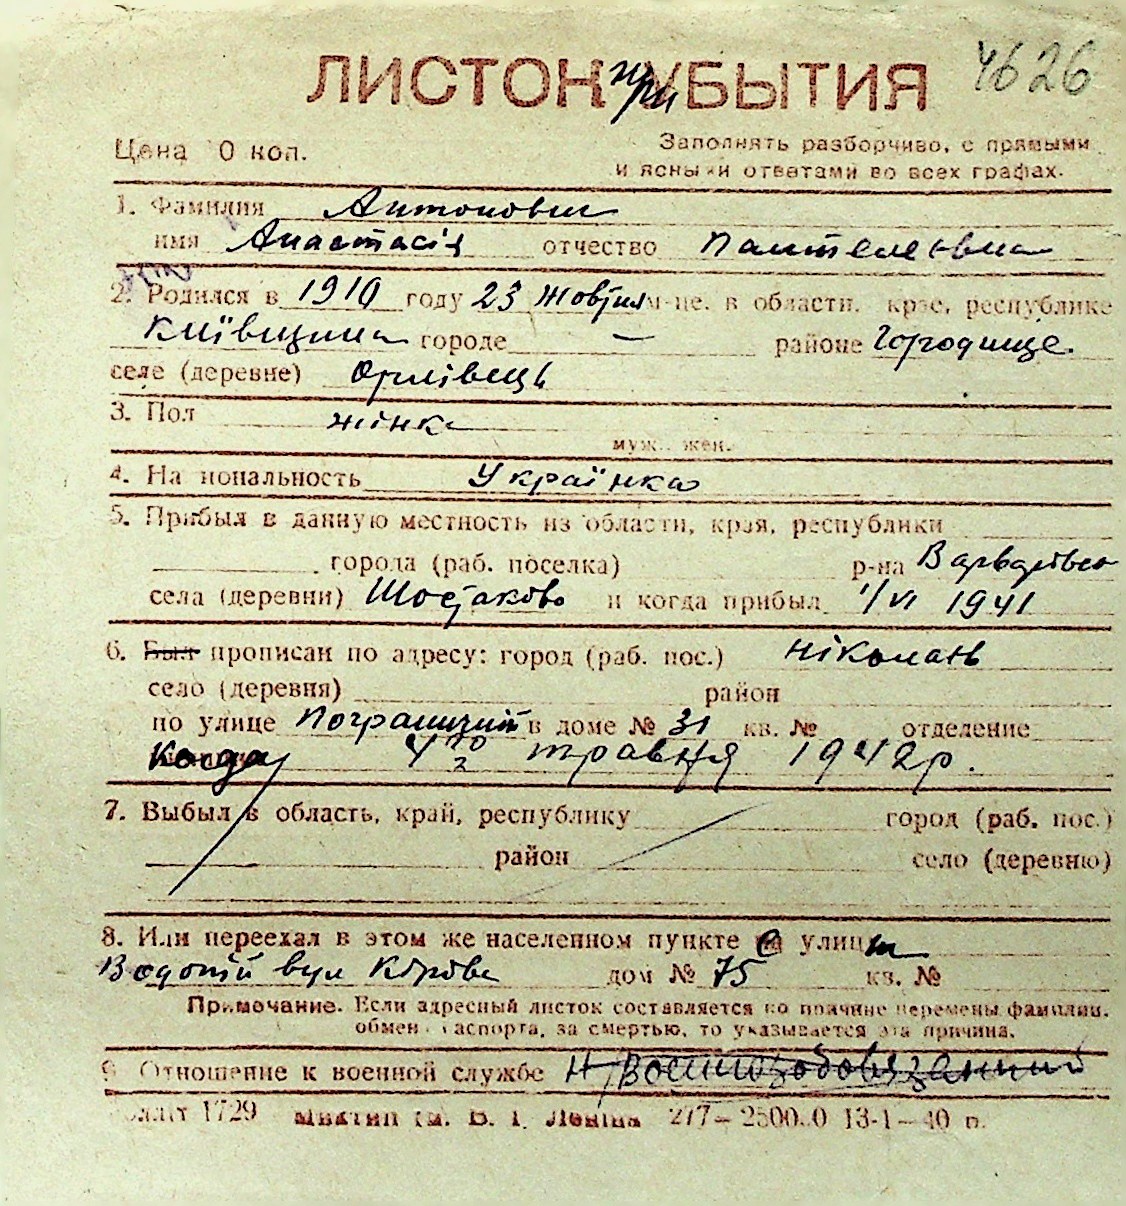 ЛИСТОК при УБЫТИЯ 4626
Цена 10 коп. Заполнять разборчиво, с прямыми
и ясными ответами во всех графах.
1. Фамилия Антонович
имя Анастасія отчество Пантелеювна
2. Родился в 1910 году 23 жовтня м-це, в области, крае, республике
Київщина городе — районе Городище.
селе (деревне) Орлівець
3. Пол жінка
муж., жен.
4. Национальность Українка
5. Прибыл в данную местность из области, края, республики
города (раб. поселка) р-на Варварівсь
села (деревни) Шостаково и когда прибыл 1/VI 1941
6. Был прописан по адресу: город (раб. пос.) Ніколаїв
село (деревня) район
по улице Пограничній в доме № 31 кв. № отделение
когда травня 1942р.
7. Выбыл в область, край, республику город (раб. пос.)
район село (деревню)
8. Или переехал в этом же населенном пункте с улицы
Водопій вул дом № 75 кв. №
Примечание. Если адресный листок составляется по причине перемены фамилии,
обмена паспорта, за смертью, то указывается эта причина.
9. Отношение к военной службе Н/военнозобовязанний
1729 ім. В. І. Леніна 277— 13-1—40 р.